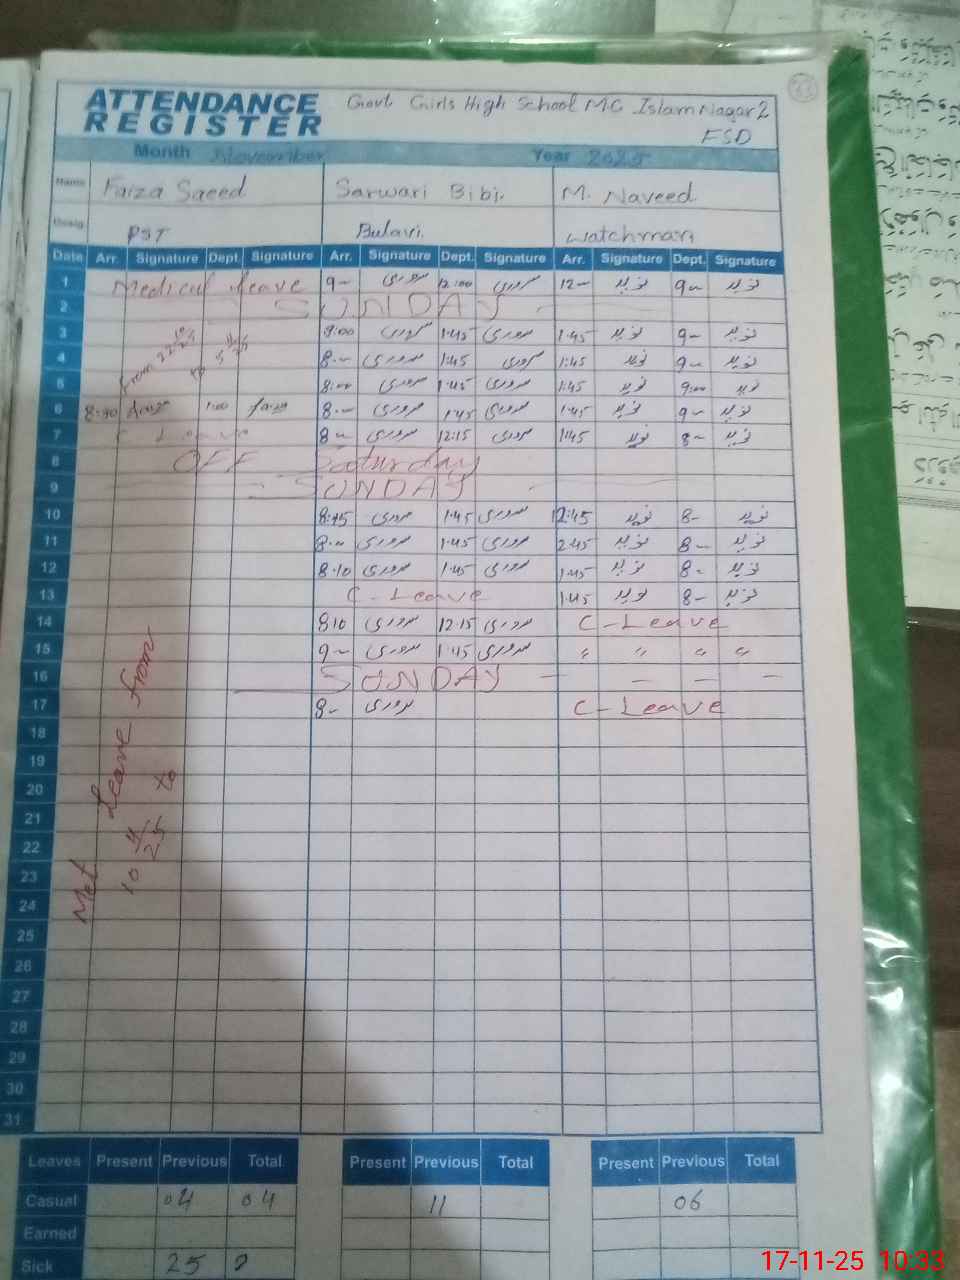 63
ATTENDANCE REGISTER
Govt Girls High School MC Islam Nagar 2
FSD
Month November Year 2025
Name Faiza Saeed Sarwari Bibi. M. Naveed
Desig. PST Bulavi. Watchman
Date Arr. Signature Dept. Signature Arr. Signature Dept. Signature Arr. Signature Dept. Signature
1 Medical leave 9- سروری 12:00 سروری 12- نوید 9- نوید
2 SUNDAY
3 8:00 سروری 1:45 سروری 1:45 نوید 9- نوید
4 8- سروری 1:45 سروری 1:45 نوید 9- نوید
5 8:00 سروری 1:45 سروری 1:45 نوید 9:00 نوید
From to
6 8:30 Faiza 1:00 Faiza 8- سروری 1:45 سروری 1:45 نوید 9- نوید
7 C Leave 8- سروری 12:15 سروری 1:45 نوید 8- نوید
8 OFF Saturday
9 SUNDAY
10 8:15 سروری 1:45 سروری 12:45 نوید 8- نوید
11 8:00 سروری 1:45 سروری 2:45 نوید 8- نوید
12 8:10 سروری 1:45 سروری 1:45 نوید 8- نوید
13 C-Leave 1:45 نوید 8- نوید
14 8:10 سروری 12:15 سروری C-Leave
15 9- سروری 1:45 سروری " " " "
16 SUNDAY
17 8- سروری C-Leave
18
19
20
21
22
23
24
25
26
27
28
29
30
31
Mat Leave From
10 11/25 to
Leaves Present Previous Total Present Previous Total Present Previous Total
Casual 04 04 11 06
Earned
Sick 25
17-11-25 10:33